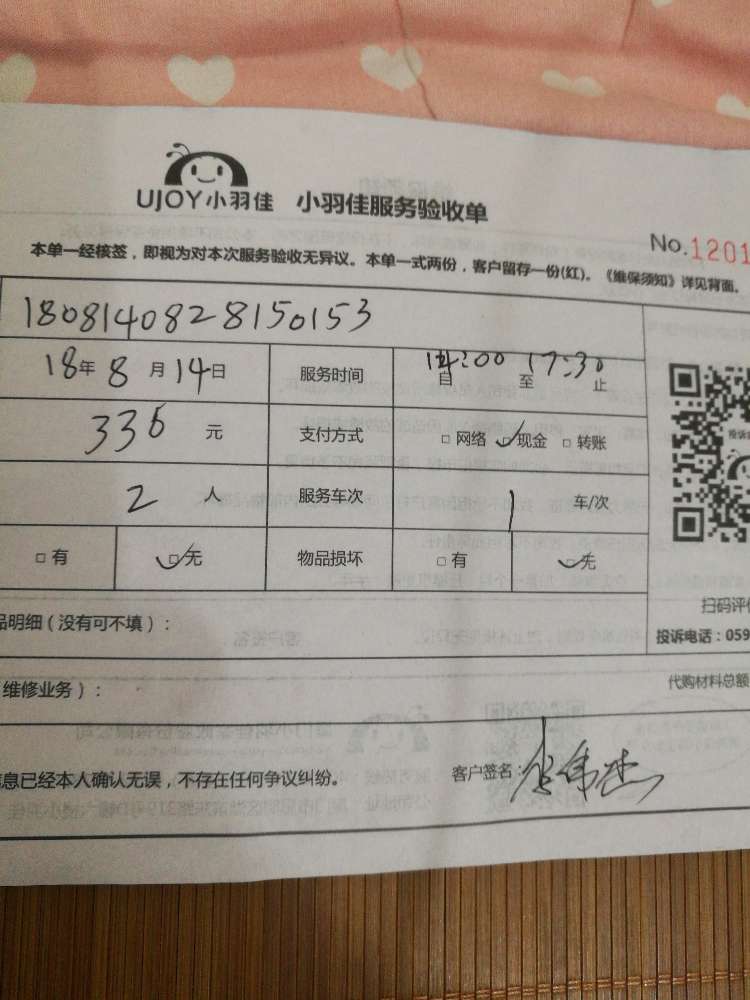 UJOY小羽佳 小羽佳服务验收单
No.1201
本单一经核签，即视为对本次服务验收无异议。本单一式两份，客户留存一份(红)。《维保须知》详见背面。
1808140828150153
18年8月14日 服务时间 自14:00至17:30止
336元 支付方式 □网络 □现金 □转账
2人 服务车次 1车/次
□有 □无 物品损坏 □有 □无
品明细（没有可不填）：
扫码评
投诉电话：059
维修业务）：
代购材料总额
信息已经本人确认无误，不存在任何争议纠纷。
客户签名：